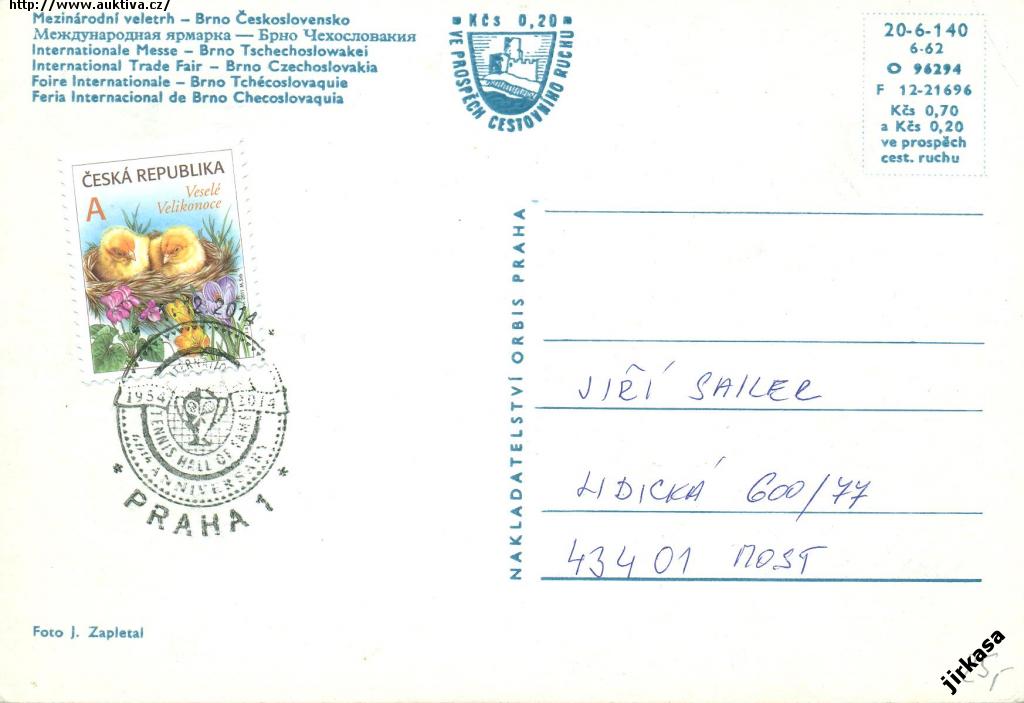 http://www.auktiva.cz/
Mezinárodní veletrh – Brno Československo
Международная ярмарка — Брно Чехословакия
Internationale Messe – Brno Tschechoslowakei
International Trade Fair – Brno Czechoslovakia
Foire Internationale – Brno Tchécoslovaquie
Feria Internacional de Brno Checoslovaquia
Kčs 0,20
VE PROSPĚCH CESTOVNÍHO RUCHU
20-6-140
6-62
O 96294
F 12-21696
Kčs 0,70
a Kčs 0,20
ve prospěch
cest. ruchu
ČESKÁ REPUBLIKA
A
Veselé
Velikonoce
2014
1954
2014
TENNIS HALL OF FAME
ANNIVERSARY
PRAHA 1
NAKLADATELSTVÍ ORBIS PRAHA
JIŘÍ SAILER
LIDICKÁ 600/77
434 01 MOST
Foto J. Zapletal
jirkasa